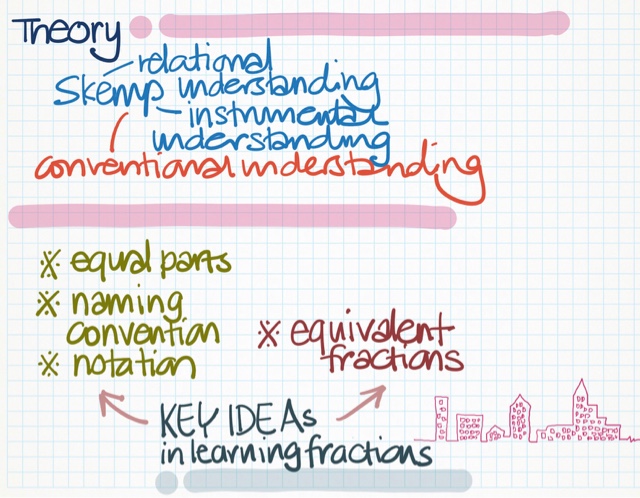 Theory
relational
Skemp understanding
instrumental
understanding
conventional understanding
※ equal parts
※ naming
convention
※ notation
※ equivalent
fractions
KEY IDEAs
in learning fractions